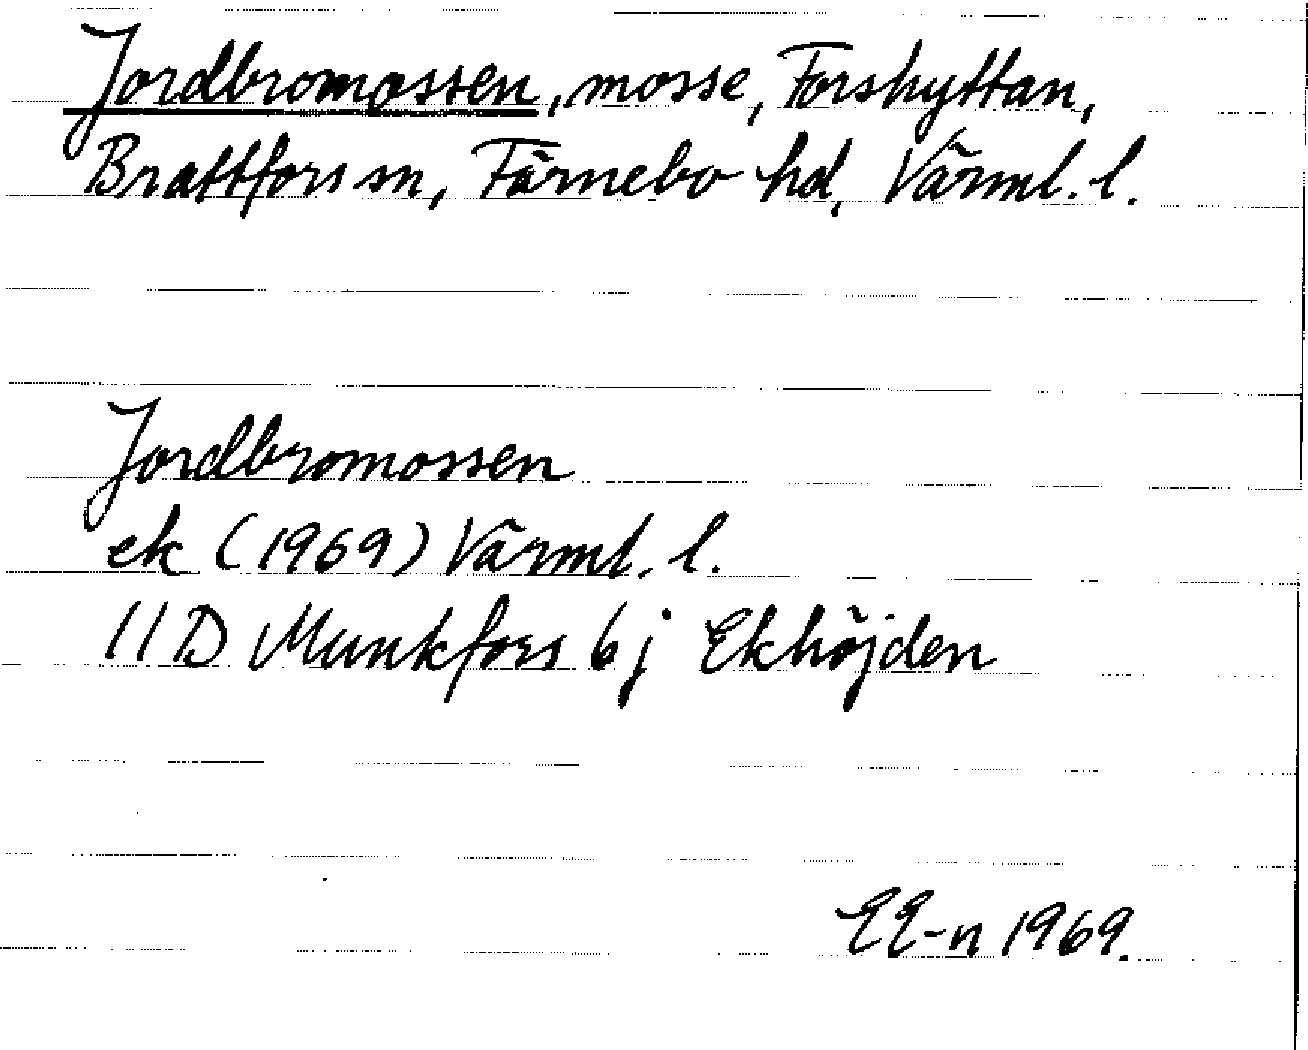 Jordbromossen, mosse, Forshyttan,
Brattfors sn, Färnebo hd, Värml. l.
Jordbromossen
ek (1969) Värml. l.
11D Munkfors 6j Ekhöjden
EE-n 1969.